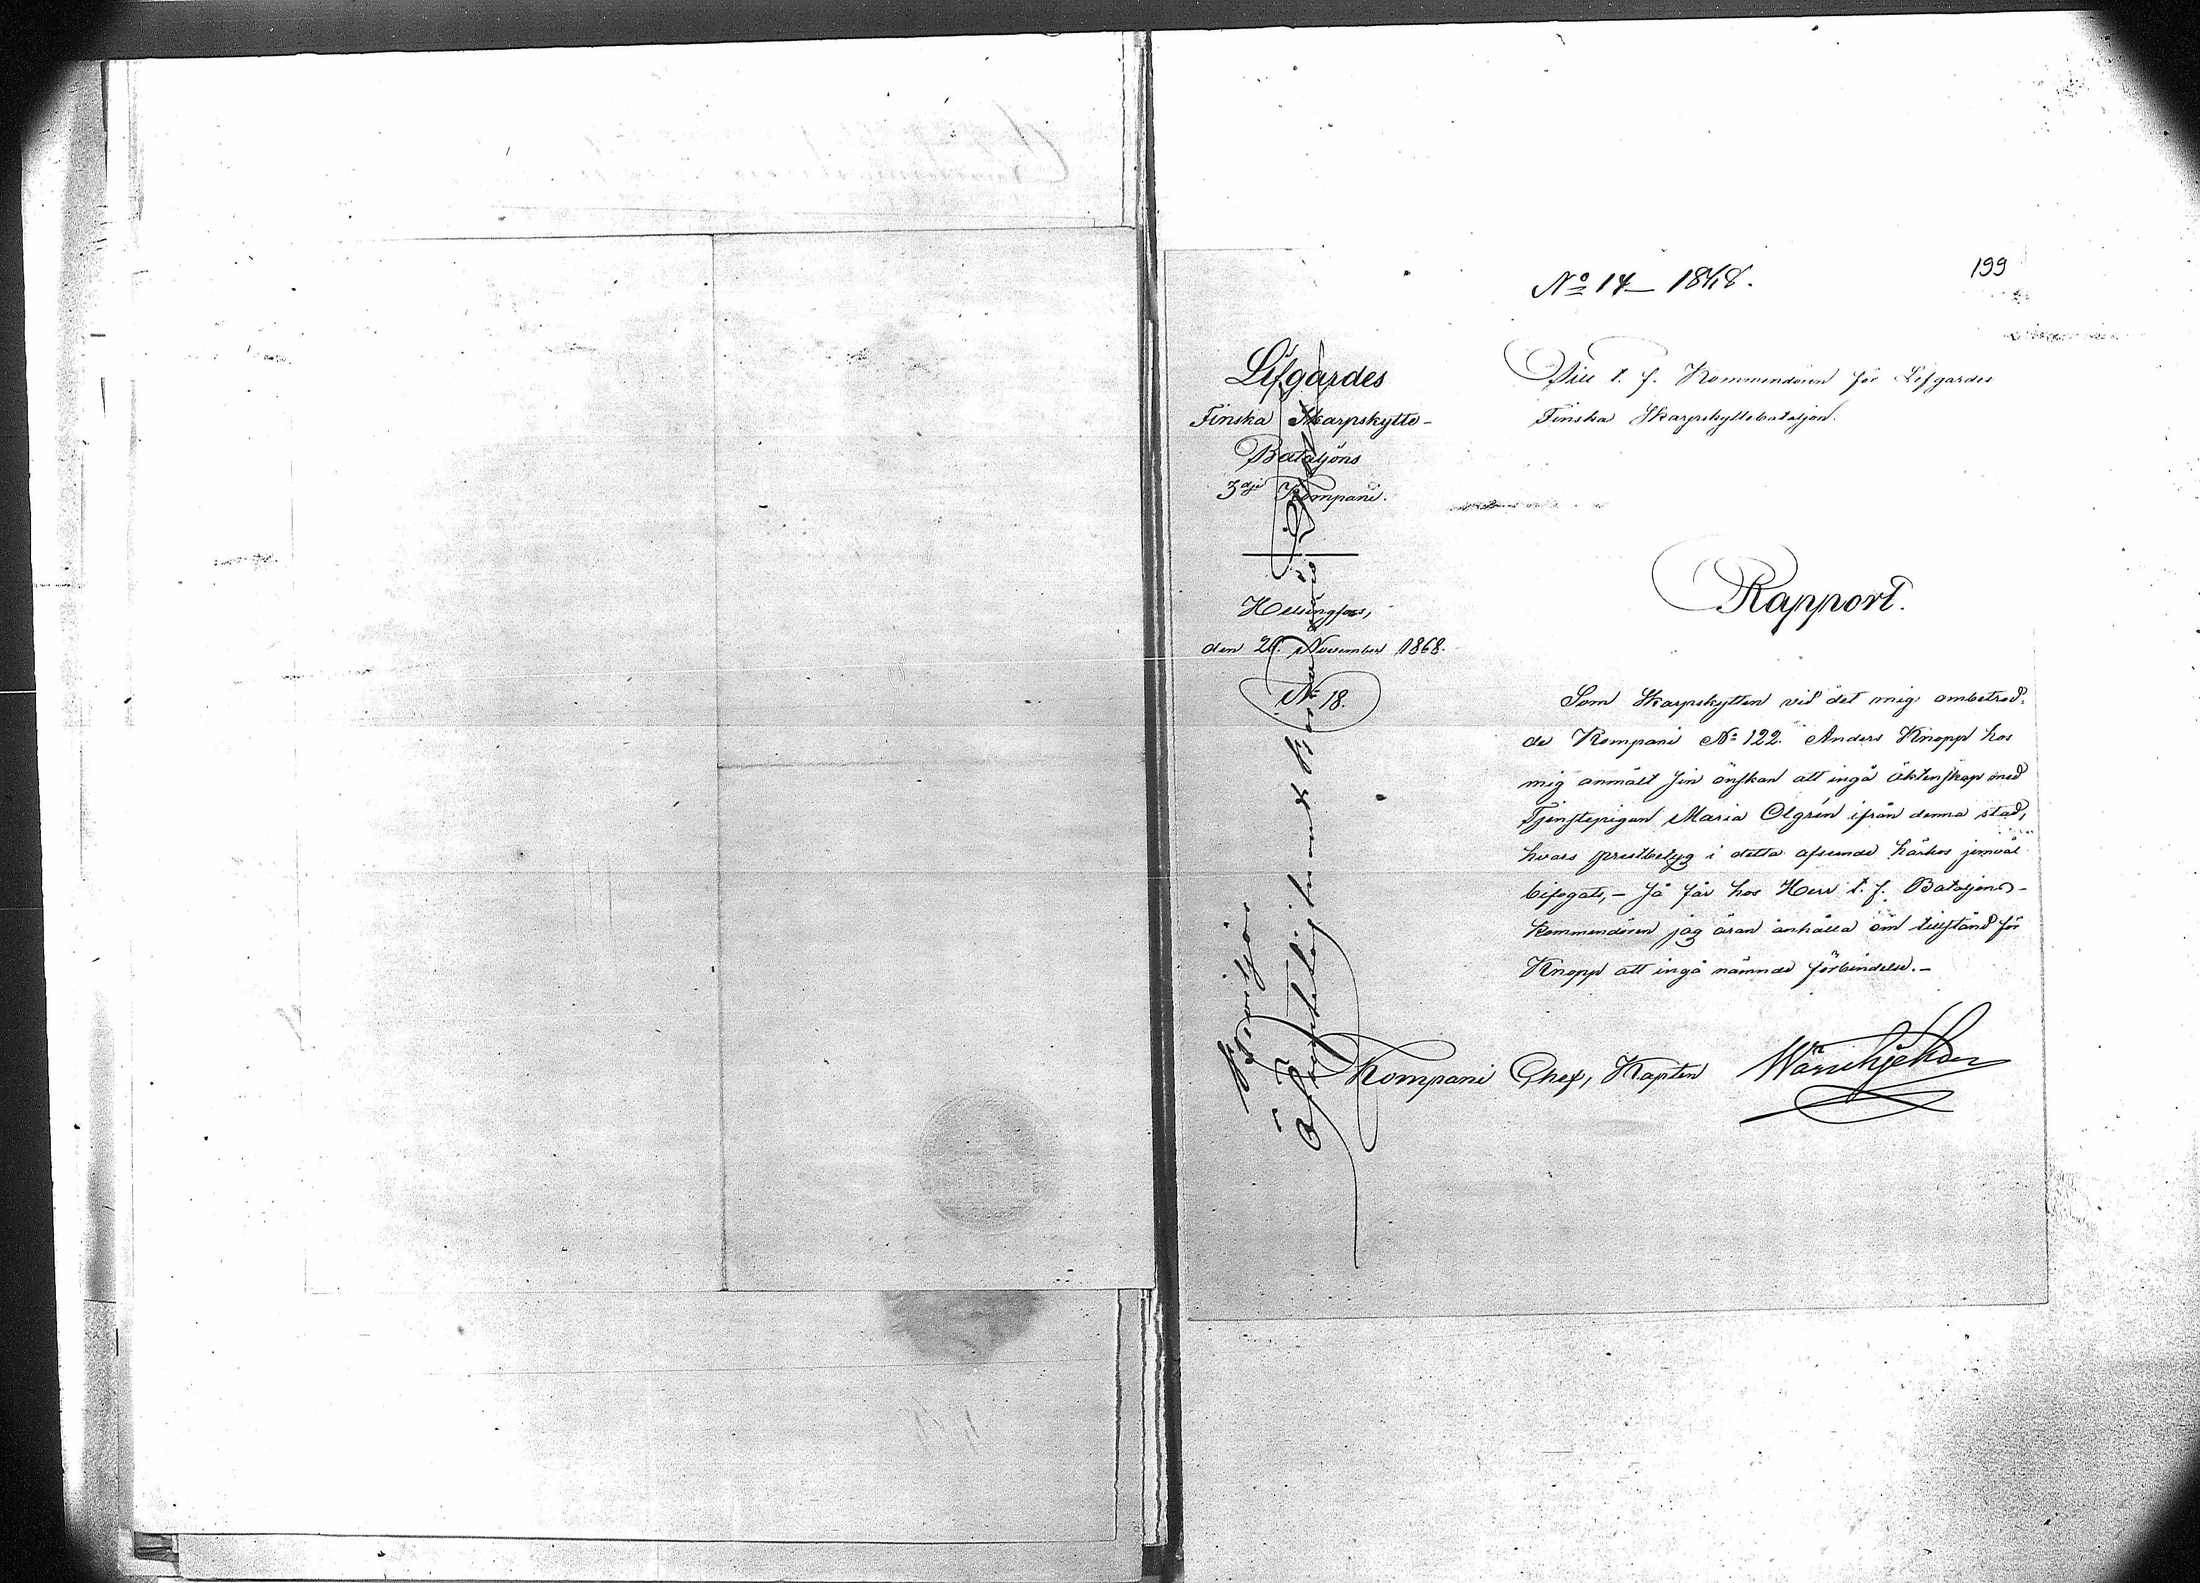 No 14 1868.
199
Lifgardes
Finska Skarpskytte-
Bataljons
3dje Kompani.
Helsingfors,
den 20. November 1868.
No 18.
Till t. f. Kommendören för Lifgardes
Finska Skarpskyttebataljon.
Rapport.
Som Skarpskytten vid det mig ombetrod-
de Kompani No 122. Anders Knopp hos
mig anmält sin önskan att ingå äktenskap med
Tjenstepigan Maria Olgrén ifrån denna stad,
hvars prestbetyg i detta afseende härhos jemväl
bifogats, – så får hos Herr t. f. Bataljons-
kommendören jag äran anhålla om tillstånd för
Knopp att ingå nämnde förbindelse. –
Kompani Chef, Kapten